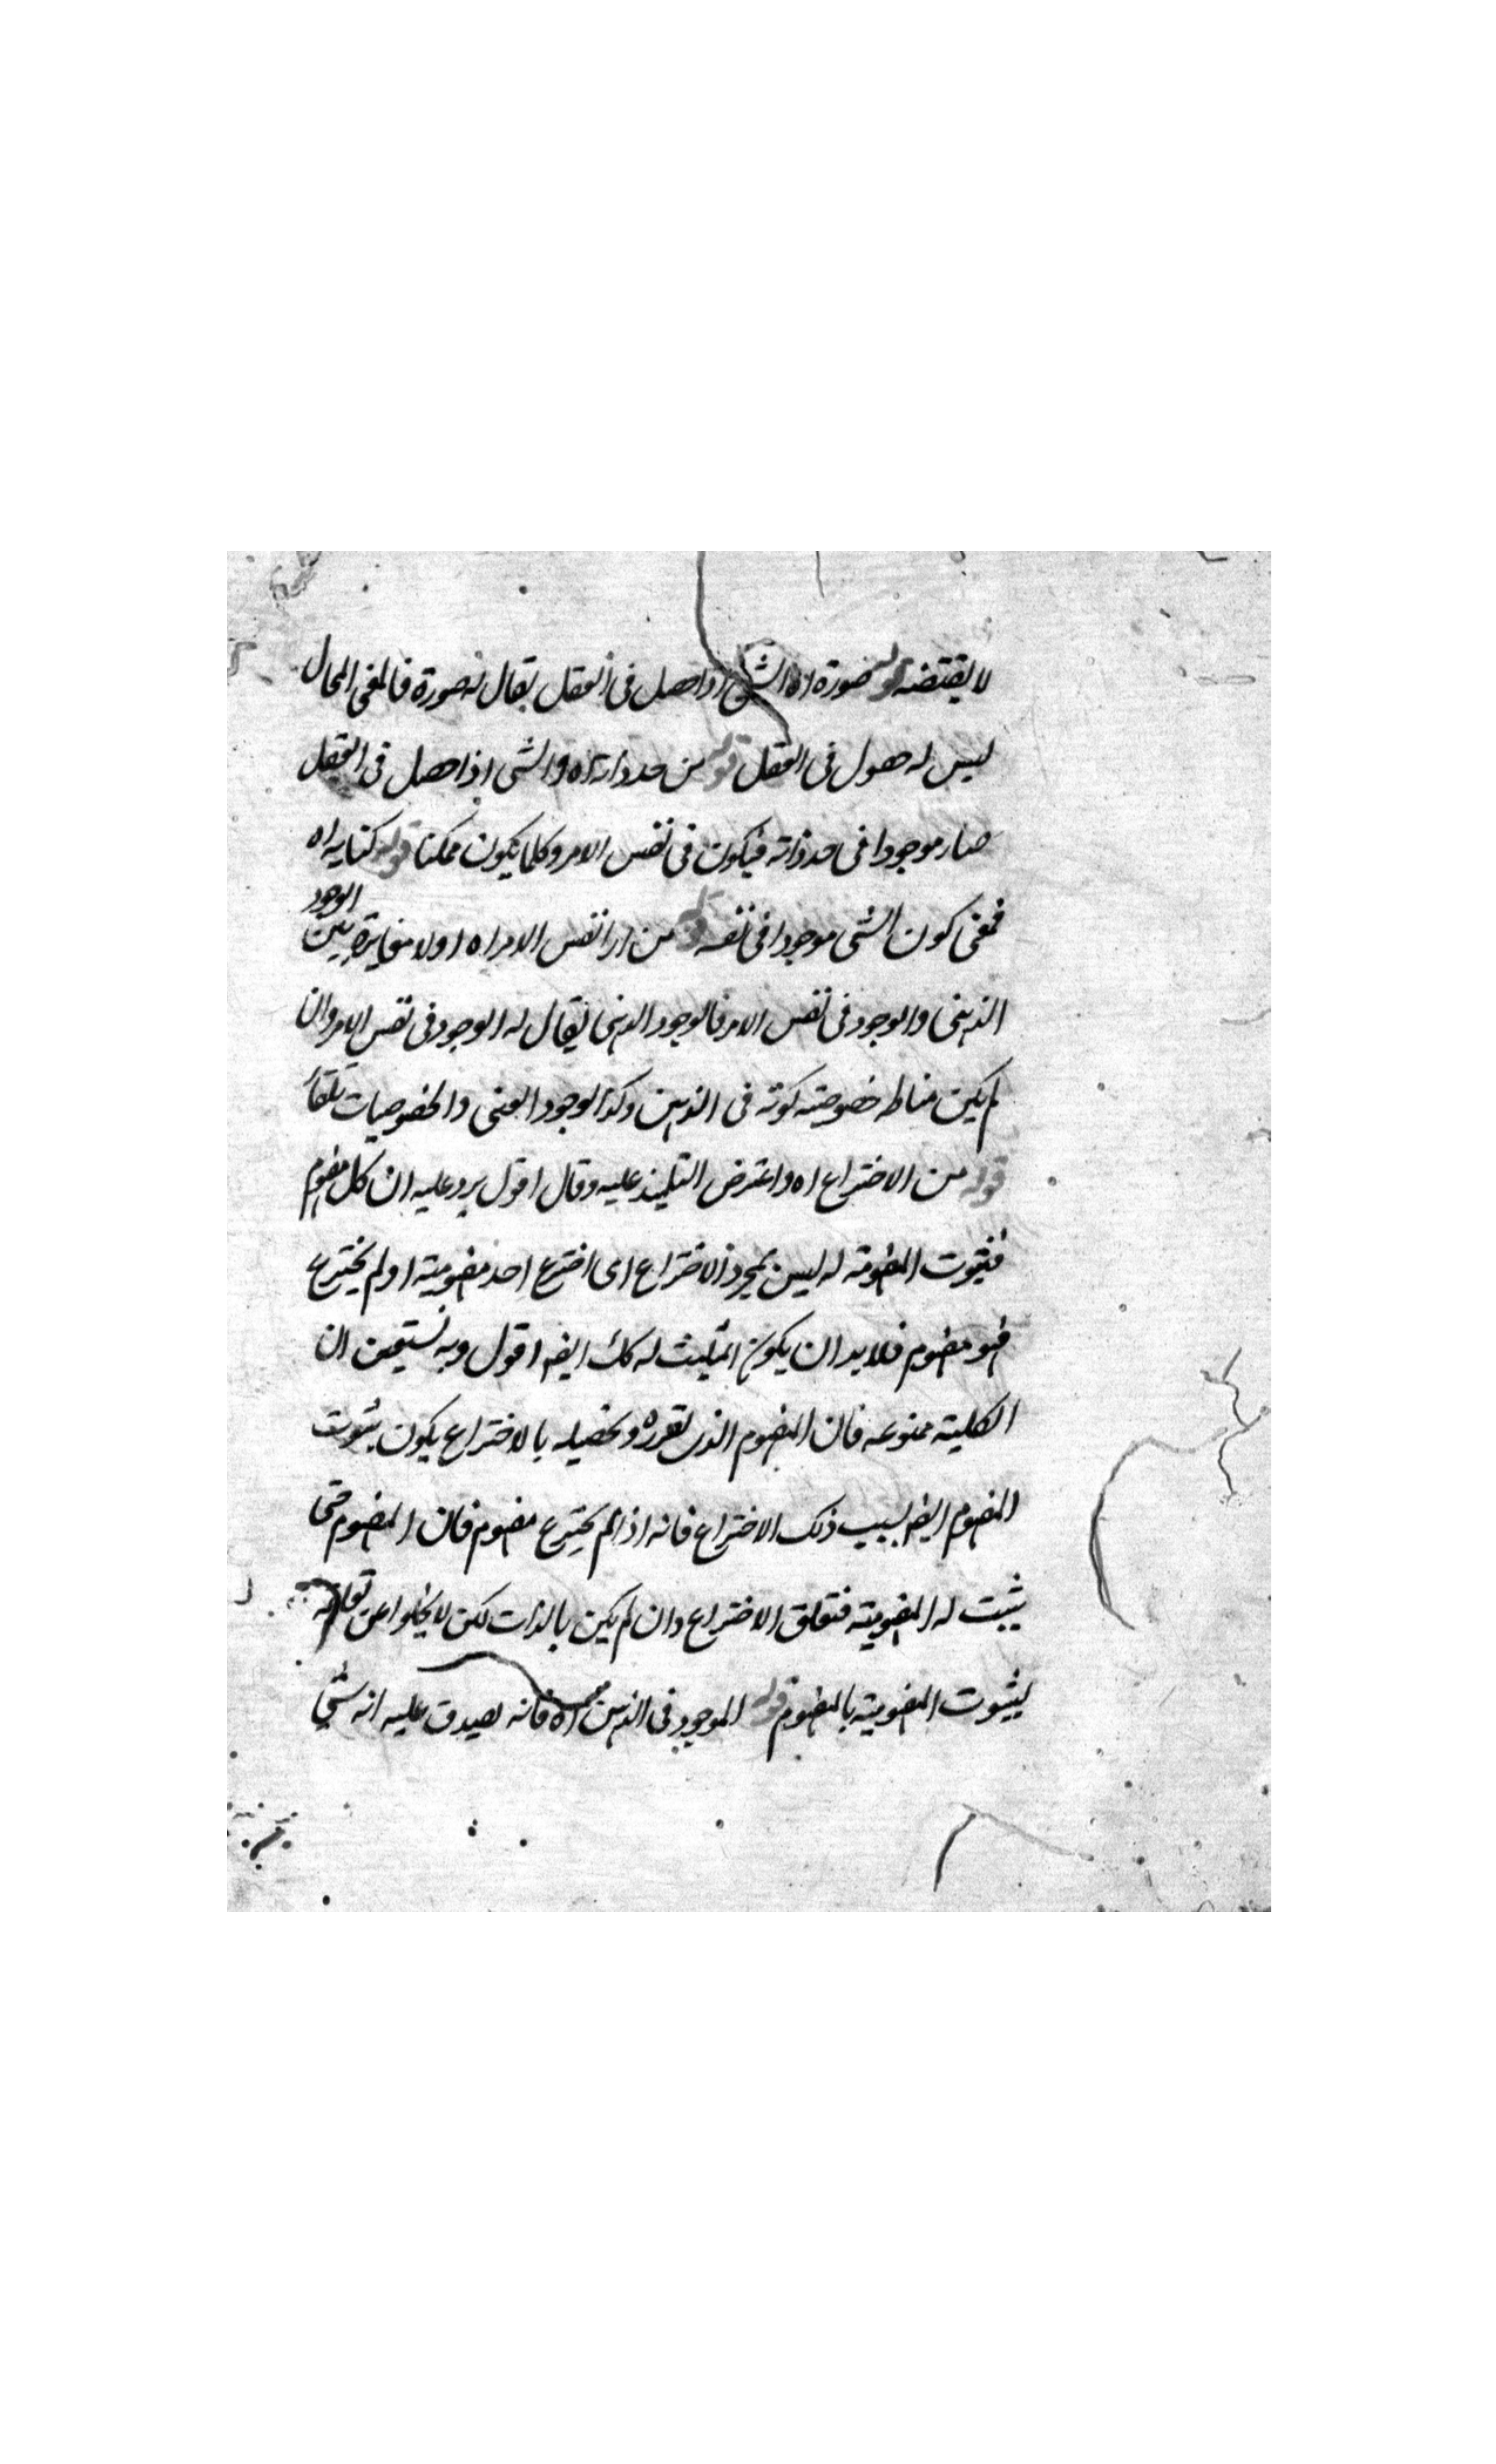 لا يقتضيه قوله صورة اه الشى اذا حصل فى العقل يقال له صورة فالمعنى المحال
ليس له حصول فى العقل قوله من حد ذاته اه والشى اذا حصل فى العقل
صار موجودا فى حد ذاته فيكون فى نفس الامر وكلما يكون ممكنا قوله كناية اه
فمعنى كون الشى موجودا فى نفسه قوله من ان نفس الامر اه اولا مغايرة بين الوجود
الذهنى والوجود فى نفس الامر فالوجود الذهنى يقال له الوجود فى نفس الامر وان
لم يكن مناط خصوصية كونه فى الذهن وكذا الوجود العينى والخصوصيات
قوله من الاختراع اه واعترض التلميذ عليه وقال اقول يرد عليه ان كل مفهوم
فثبوت المفهومية له ليس بمجرد الاختراع اى اخترع احد مفهوميته او لم يخترع
فهو مفهوم فلا بد ان يكون المثبت له كك ايضا اقول وبه نستعين ان
الكلية ممنوعه فان المفهوم الذى تقرره وتحصيله بالاختراع يكون ثبوت
المفهوم ايضا بسبب ذلك الاختراع فانه اذا لم يخترع مفهوم فان المفهوم حتى
يثبت له المفهومية فتعلق الاختراع وان لم يكن بالذات لكن لا يخلوا عن تعلقه
بثبوت المفهومية بالمفهوم قوله الموجود فى الذهن اه فانه يصدق عليه انه شى